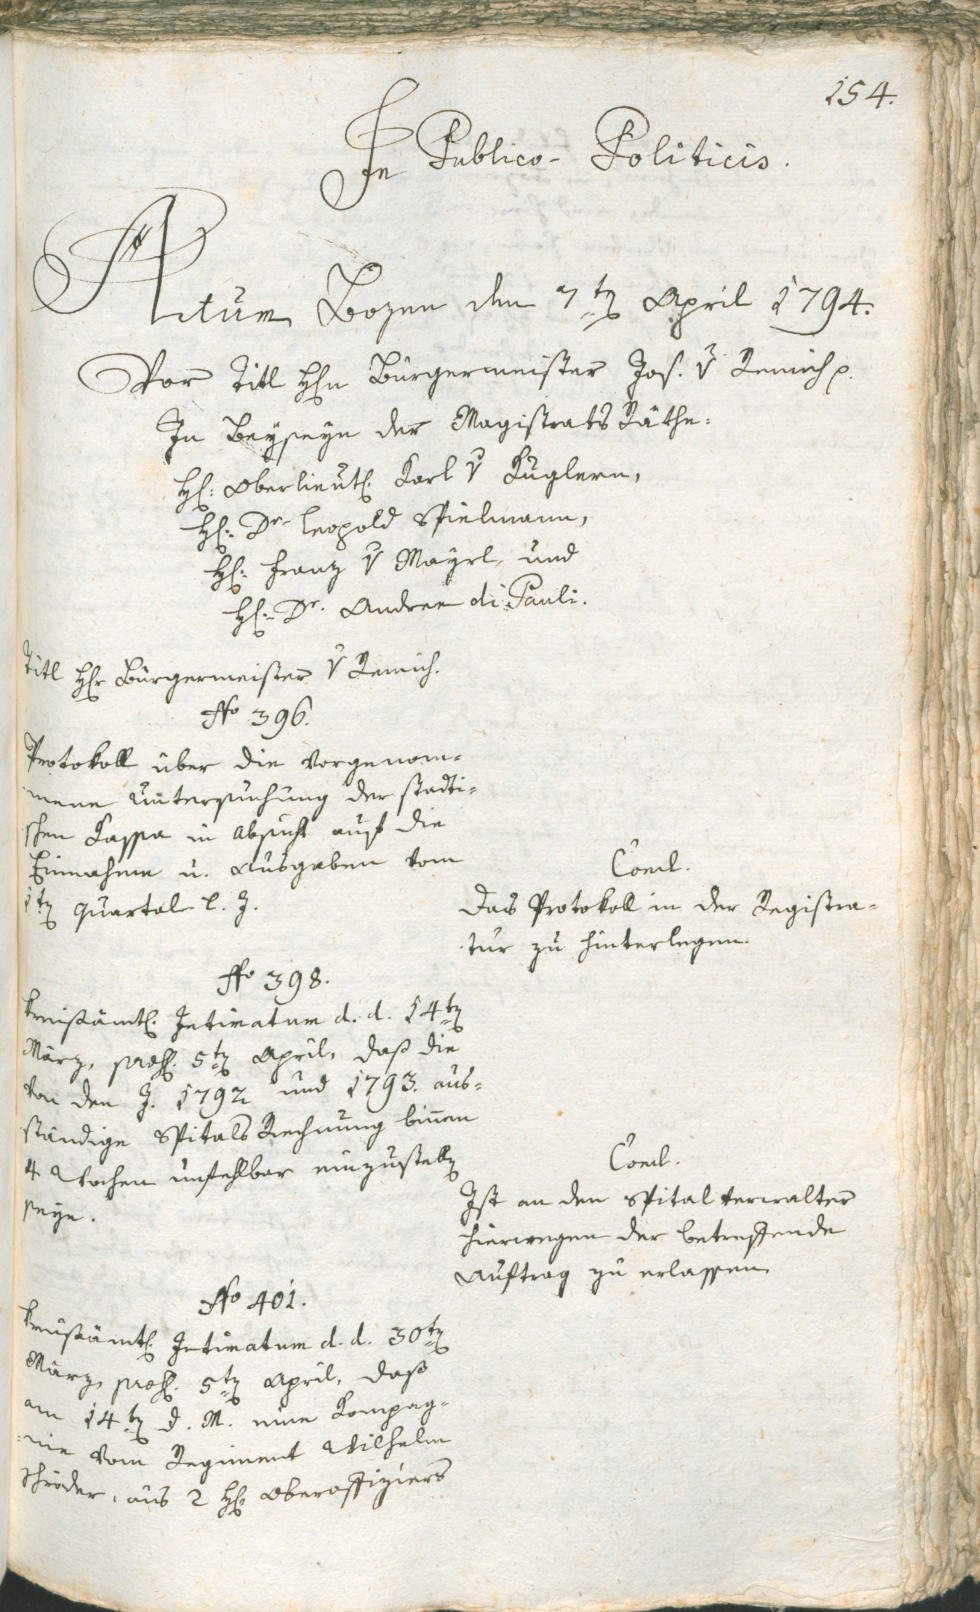 154.
In Publico-Politicis.
Actum Bozen den 7ten April 1794.
Vor Titl Hln Bürgermeister Jos. v Remich p.
In Beyseyn der Magistrats Räthe:
Hl: Oberlieutl. Karl v Kuglern,
Hl: Dr. Leopold Spielmann,
Hl: Franz v Mayrl, und
Hl: Dr. Andree di Pauli.
Titl Hhr Bürgermeister v Remich.
No 396.
Protokoll über die vorgenom-
mene Untersuchung der städti-
schen Kassa in Absicht auf die
Einnahme u. Ausgaben vom
1ten Quartal l. J.
Concl.
Das Protokoll in der Registra-
tur zu hinterlegen.
No 398.
Kreisämtl. Intimatum d. d. 14ten
März, 5ten April, daß die
von den J. 1792 und 1793. aus-
ständige Spitals Rechnung binnen
4 Wochen unfehlbar einzustellen
seye.
Concl.
Ist an den Spitalverwalter
hierwegen der betreffende
Auftrag zu erlassen.
No 401.
Kreisämtl. Intimatum d. d. 30ten
März, 5ten April, daß
am 14ten d. M. eine Kompag-
nie vom Regiment Wilhelm
Schröder, aus 2 Hl: Oberoffiziers